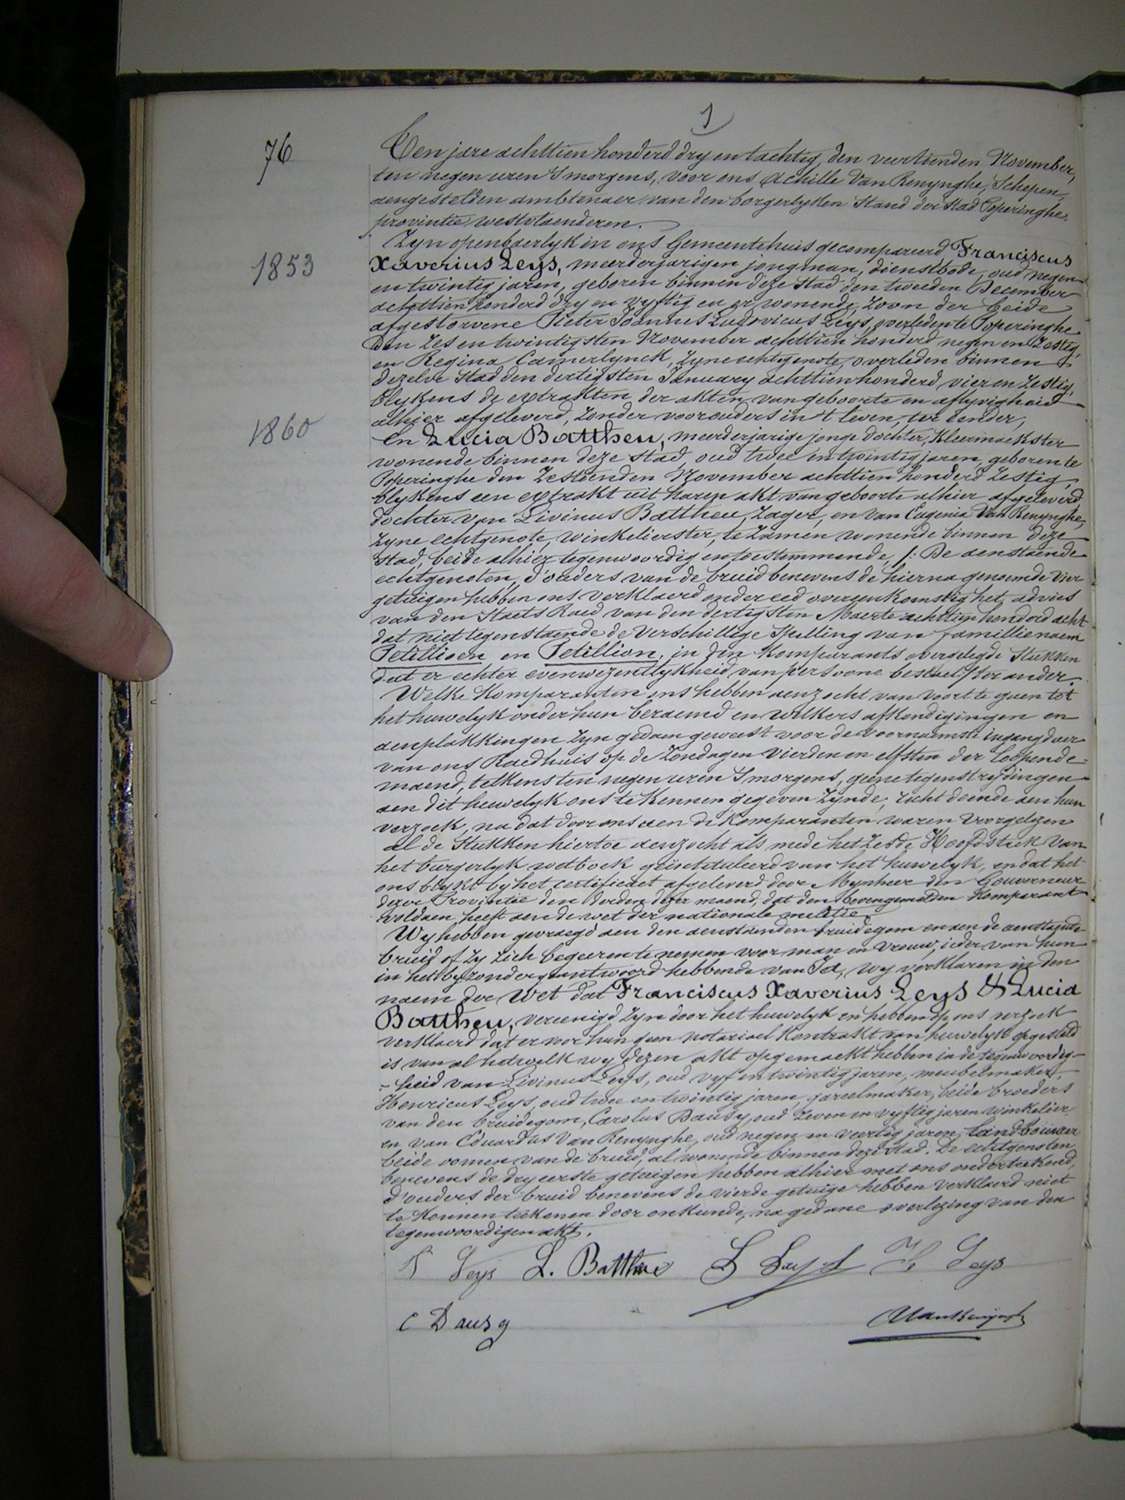 1
76
Ten jare achttien honderd dry en tachtig, den veertienden November,
ten negen uren 's morgens, voor ons Achille Van Renynghe, Schepen,
aengestelden ambtenaer van den borgerlyken Stand der Stad Poperinghe
provintie westvlaenderen.
Zyn openbaerlyk in ons Gemeentehuis gecompareerd, Franciscus
1853
Xaverius Leys, meerderjarigen jongman, dienstbode, oud negen-
en twintig jaren, geboren binnen deze Stad den tweeden December
achttien honderd dry en vyftig en er wonende, zoon der beide
afgestorvene Pieter Joannes Ludovicus Leys, overleden te Poperinghe
den zes en twintigsten November achttien honderd negen en zestig,
en Regina Camerlynck, zyne echtgenote, overleden binnen
dezelve Stad den dertigsten January achttien honderd vier en zestig,
blykens de extrakten der akten van geboorte en aflyvigheid
alhier afgeleverd, zonder voorouders in 't leven, ter eender,
1860
En Lucia Battheu, meerderjarige jonge dochter, kleermaekster
wonende binnen deze Stad oud twee en twintig jaren, geboren te
Poperinghe den zestienden November achttien honderd zestig
blykens een extrakt uit haren akt van geboorte alhier afgeleverd
dochter van Livinus Battheu, zager, en van Eugenia Van Renynghe,
zyne echtgenote, winkelierster, te zamen wonende binnen deze
Stad, beide alhier tegenwoordig en toestemmende, /: De aenstaende
echtgenoten, d'ouders van de bruid benevens de hierna genoemde vier
getuigen hebben ons verklaerd onder eed overeenkomstig het advies
van den Staets Raed van den dertigsten Maerte achttien honderd acht
dat niettegenstaende de verschillige Spelling van familienaem
Petillioen en Petillion, in den komparants overgelegde Stukken
dat er echter evenwezentlykheid van persoone bestaet :/ ter ander.
Welke Komparanten ons hebben aenzocht van voort te gaen tot
het huwelyk onder hun beraemd en welkers afkondigingen en
aenplakkingen zyn gedaen geweest voor de voornaemste ingangdeur
van ons Raedhuis op de zondagen vierden en elfsten der loopende
maend, telkens ten negen uren 's morgens, geene tegenstrydingen
aen dit huwelyk ons te kennen gegeven zynde, recht doende aen hun
verzoek, na dat door ons aen de Komparanten waren voorgelezen
al de Stukken hiertoe aenzocht als mede het zesde Hoofdstuk van
het burgerlyk wetboek geïntituleerd van het huwelyk, en dat het
ons blykt by het certificaet afgeleverd door Mynheer den Gouverneur
dezer Provintie den derden dezer maend, dat den bovengemelden Komparant
voldaen heeft aen de wet der nationale militie,
Wy hebben gevraegd aen den aenstaenden bruidegom en aen de aenstaende
bruid of zy zich begeeren te nemen voor man en vrouw, ieder van hun
in het byzonder geantwoord hebbende van Ja, wy verklaren in den
naem der Wet dat Franciscus Xaverius Leys & Lucia
Battheu, vereenigd zyn door het huwelyk en hebben op ons verzoek
verklaerd dat er voor hun geen notariael kontrakt van huwelyk opgesteld
is van al hetwelk wy dezen akt opgemaekt hebben in de tegenwoordig-
-heid van Livinus Leys, oud vyf en twintig jaren, meubelmaker,
Henricus Leys, oud twee en twintig jaren, gareelmaker, beide broeders
van den bruidegom, Carolus Dausy, oud zeven en vyftig jaren winkelier
en van Eduardus Van Renynghe, oud negen en veertig jaren, landbouwer
beide oomen van de bruid, al wonende binnen deze Stad. De echtgenoten
benevens de dry eerste getuigen hebben alhier met ons onderteekend,
d'ouders der bruid benevens de vierde getuige hebben verklaerd niet
te konnen teekenen door onkunde, na gedane overlezing van den
tegenwoordigen akt.
F Leys L. Battheu L Leys H Leys
C Dausy AVanRenynghe